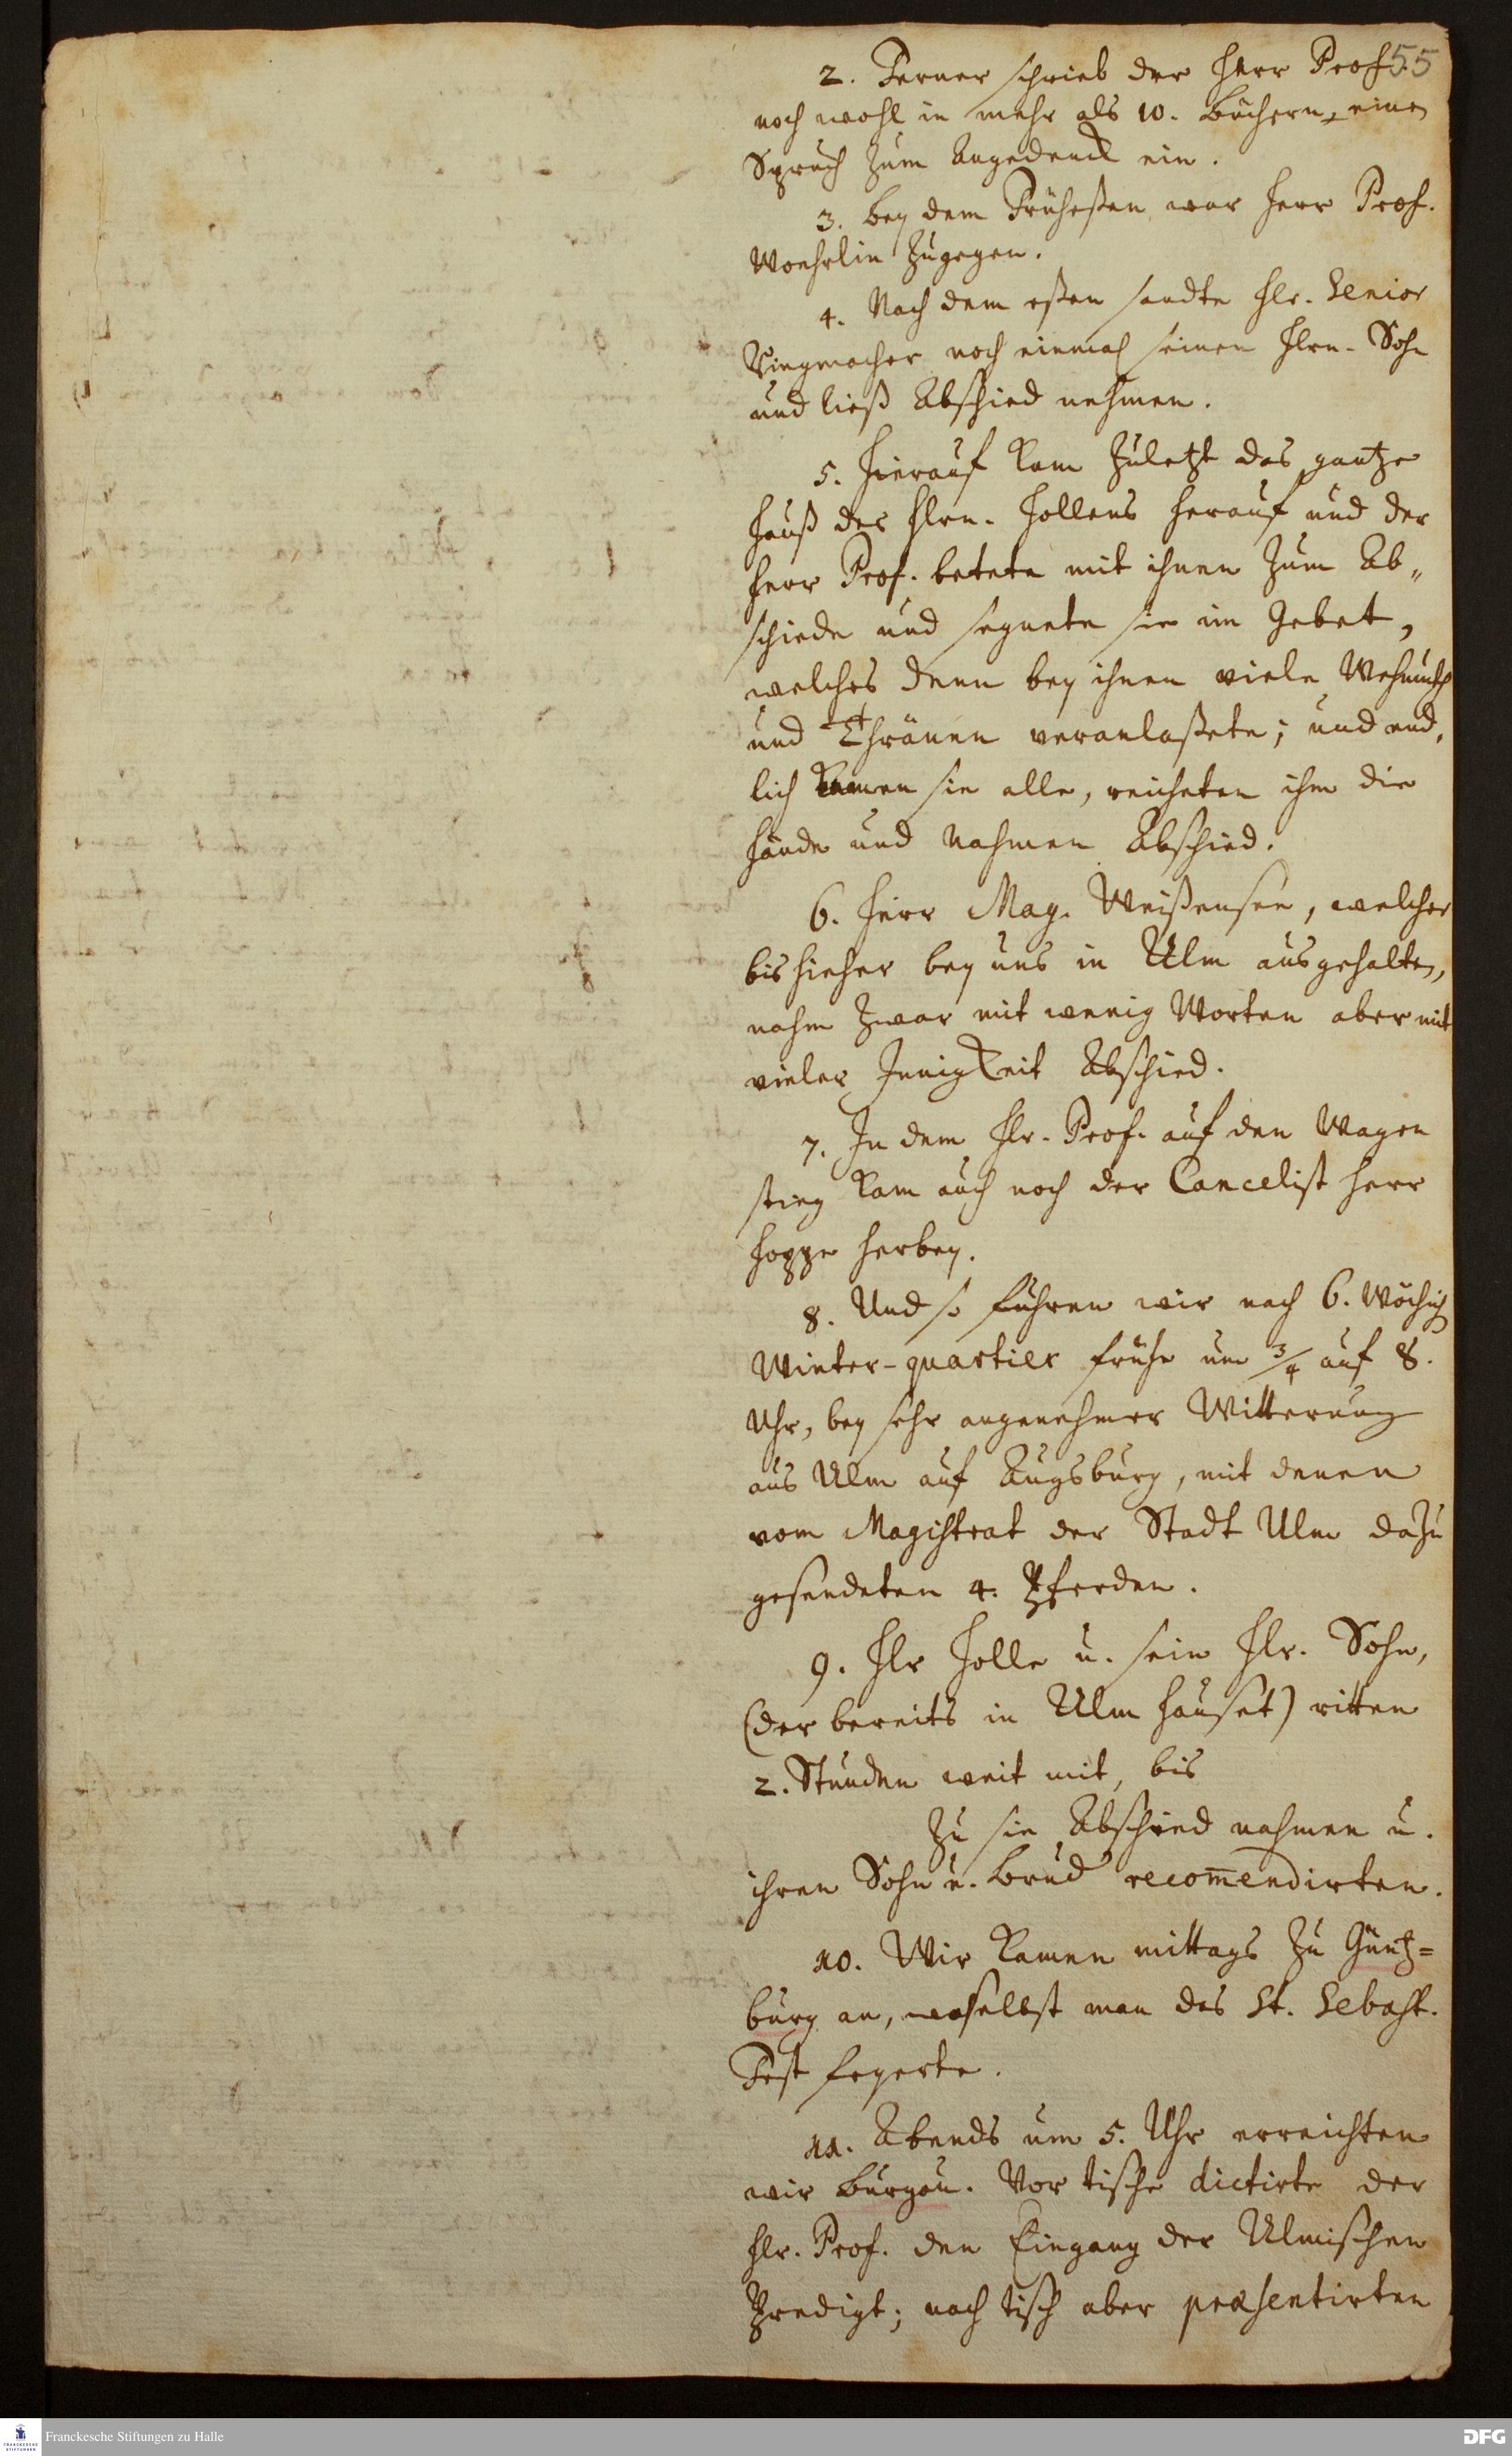 55
2. Ferner schrieb der Herr Prof.
noch wohl in mehr als 10. Büchern, einen
Spruch zum Angedenck ein.
3. bey dem Frühessen war Herr Prof.
Woehrlin zugegen.
4. Nach dem eßen sandte Hlr. Senior
Ringmacher noch einmal seinen Hlrn. Sohn
und ließ Abschied nehmen.
5. Hierauf kam zuletzt das gantze
Hauß des Hlrn. Hollens herauf und der
Herr Prof. betete mit ihnen zum Ab„
schiede und segnete sie im Gebet,
welches denn bey ihnen viele Wehmuth
und Thränen veranlaßete; und end„
lich kamen sie alle, reicheten ihm die
Hände und nahmen Abschied.
6. Herr Mag. Weißensee, welcher
bis hieher bey uns in Ulm ausgehalten,
nahm zwar mit wenig Worten aber mit
vieler Innigkeit Abschied.
7. In dem Hlr. Prof. auf den Wagen
stieg kam auch noch der Cancelist Herr
Hoppe herbey.
8. Und so fuhren wir nach 6. wöchich
Winter-quartier frühe um 3/4 auf 8.
Uhr, bey sehr angenehmer Witterung
aus Ulm auf Augsburg, mit denen
vom Magistrat der Stadt Ulm dazu
gesendeten 4. Pferden.
9. Hlr Holle u. sein Hlr. Sohn,
(der bereits in Ulm hauset) ritten
2. Stunden weit mit, bis
zu sie Abschied nahmen u.
ihren Sohn u. Brud recom̅endirten.
10. Wir kamen mittags zu Güntz=
burg an, woselbst man des St. Sebast.
Fest feyerte.
11. Abends um 5. Uhr erreichten
wir Burgau. Vor tische dictirte der
Hlr. Prof. den Eingang der Ulmischen
Predigt; nach tisch aber præsentirten
Franckesche Stiftungen zu Halle
DFG